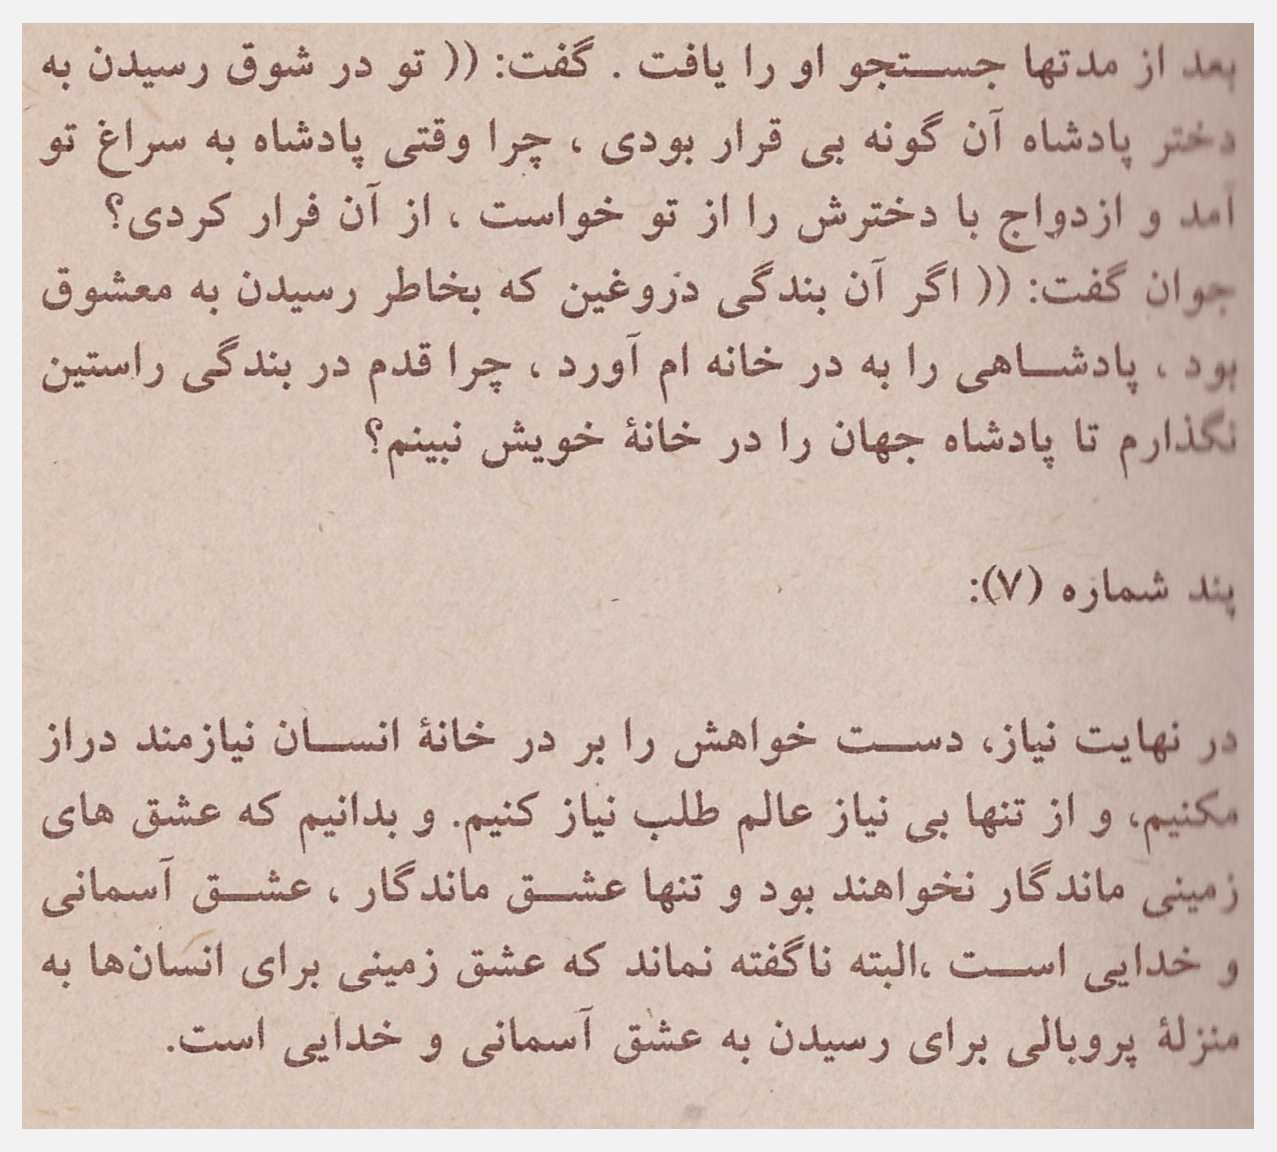 بعد از مدتها جستجو او را یافت . گفت: (( تو در شوق رسیدن به
دختر پادشاه آن گونه بی قرار بودی ، چرا وقتی پادشاه به سراغ تو
آمد و ازدواج با دخترش را از تو خواست ، از آن فرار کردی؟
جوان گفت: (( اگر آن بندگی دروغین که بخاطر رسیدن به معشوق
بود ، پادشاهی را به در خانه ام آورد ، چرا قدم در بندگی راستین
نگذارم تا پادشاه جهان را در خانهٔ خویش نبینم؟
پند شماره (۷):
در نهایت نیاز، دست خواهش را بر در خانهٔ انسان نیازمند دراز
مکنیم، و از تنها بی نیاز عالم طلب نیاز کنیم. و بدانیم که عشق های
زمینی ماندگار نخواهند بود و تنها عشق ماندگار ، عشق آسمانی
و خدایی است ،البته ناگفته نماند که عشق زمینی برای انسان‌ها به
منزلهٔ پروبالی برای رسیدن به عشق آسمانی و خدایی است.